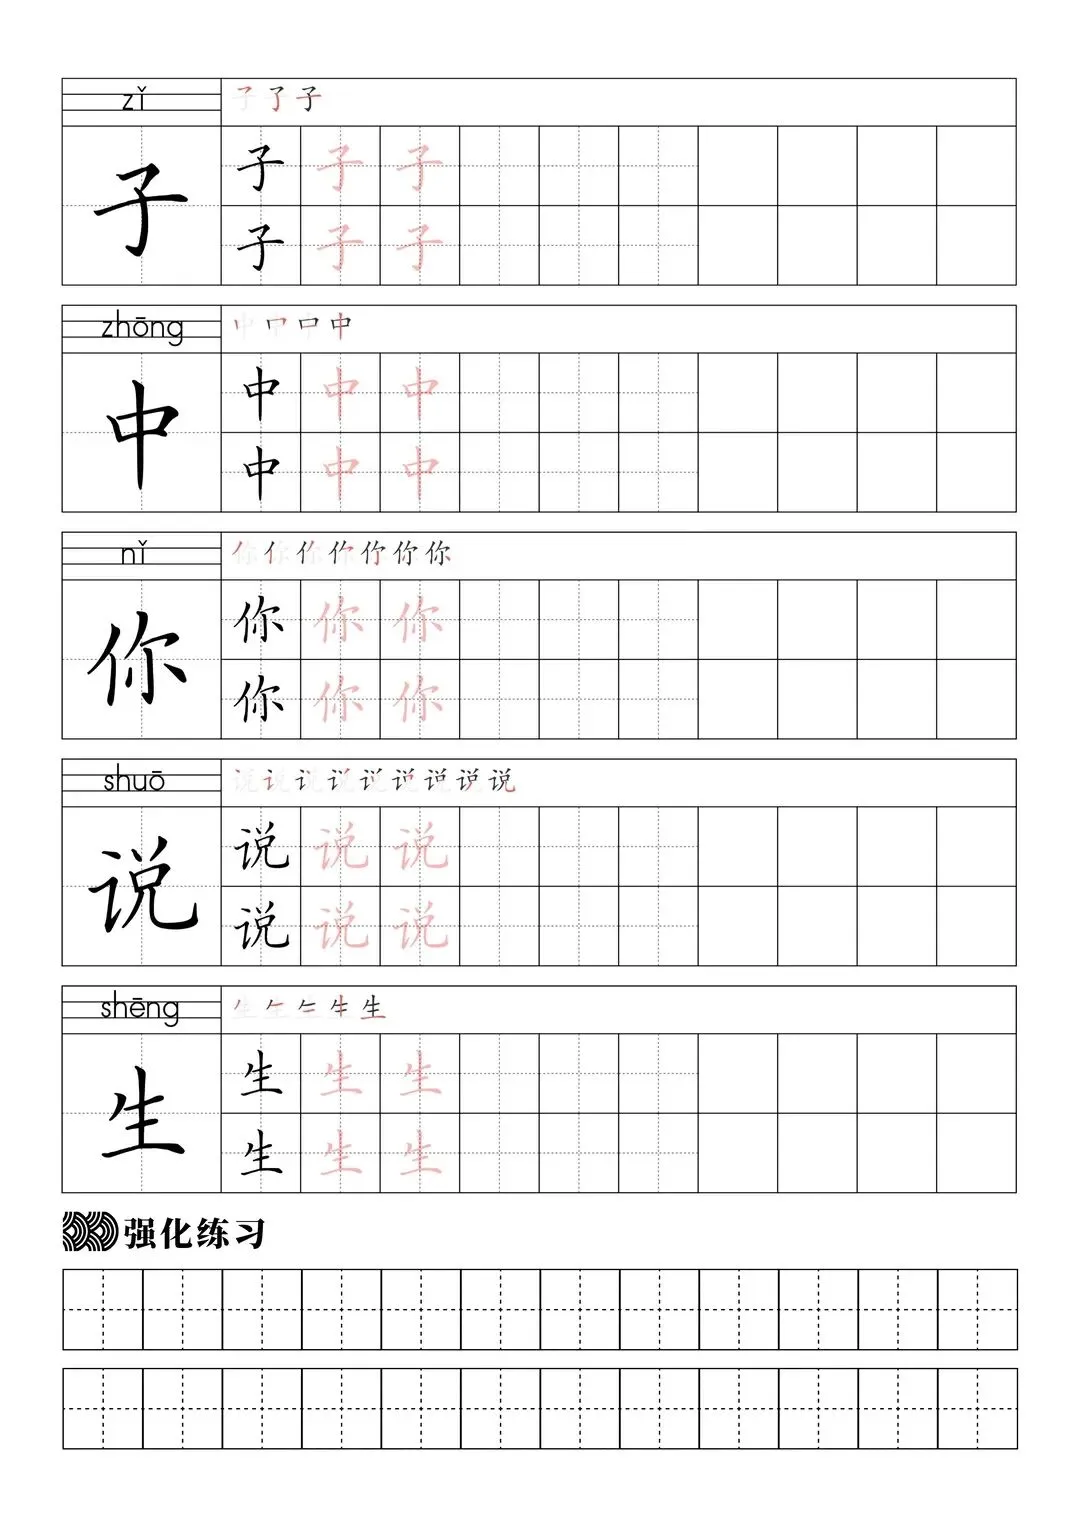 zǐ
子 了 子
子 子 子 子
子 子 子
zhōng
中 中 中 中
中 中 中 中
中 中 中
nǐ
你 你 你 你 你 你 你
你 你 你 你
你 你 你
shuō
说 说 说 说 说 说 说 说 说
说 说 说 说
说 说 说
shēng
生 生 生 生 生
生 生 生 生
生 生 生
强化练习